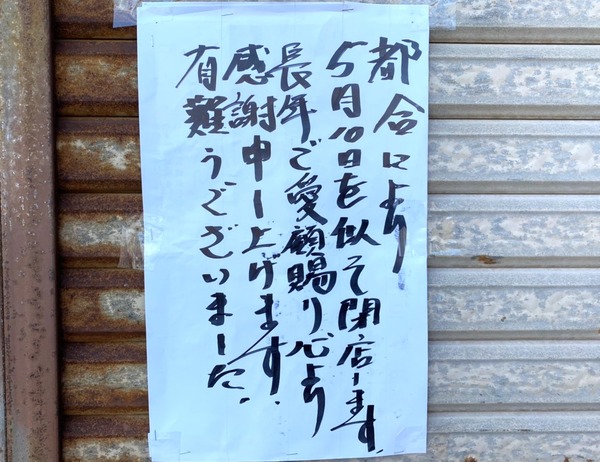 都合により
5月10日を似て閉店します。
長年ご愛顧賜り心より
感謝申し上げます。
有難うございました。